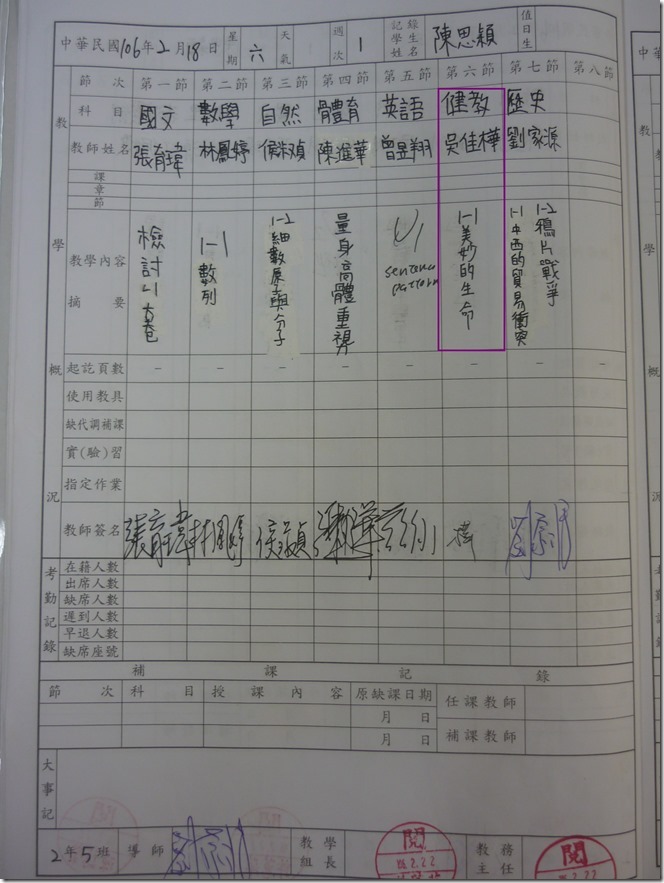 中華民國106年2月18日 星期 六 天氣 週次 1 記錄學生姓名 陳思穎 值日生
節次 第一節 第二節 第三節 第四節 第五節 第六節 第七節 第八節
科目 國文 數學 自然 體育 英語 健教 歷史
教師姓名 張育瑋 林鳳婷 陳進華 曾昱翔 吳佳樺 劉家源
課
章
節
教學內容摘要
1-1 數列
1-2 細數原子與分子
量身高體重視
U1 sentence pattern
1-1 美妙的生命
1-1 中西的貿易衝突
1-2 鴉片戰爭
起訖頁數 － － － － － － －
使用教具
缺代調補課
實(驗)習
指定作業
教師簽名
教學概況
考勤記錄
在籍人數
出席人數
缺席人數
遲到人數
早退人數
缺席座號
補課記錄
節次 科目 授課內容 原缺課日期 任課教師
月 日
月 日 補課教師
大事記
2年5班 導師 教學組長 閱 2.22 教務主任 閱 2.22